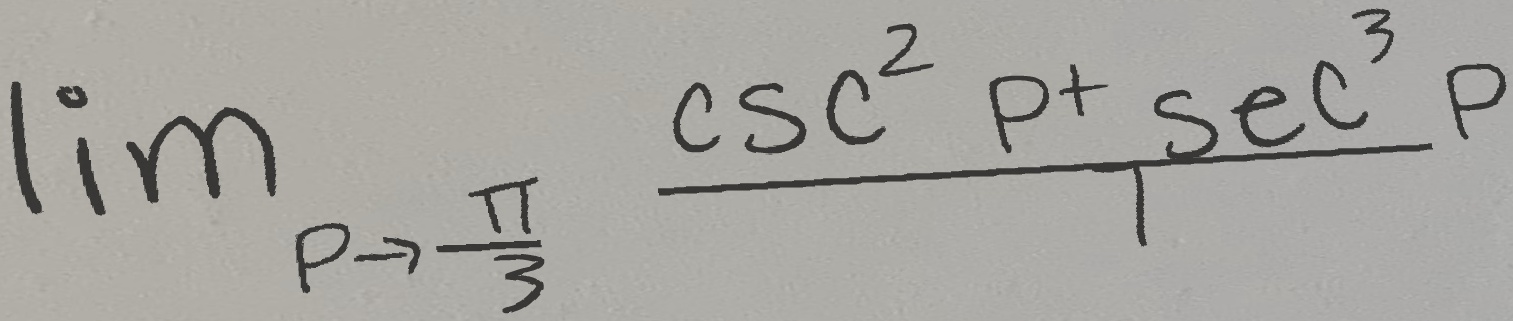 lim p→π/3 (csc² p + sec³ p)/1